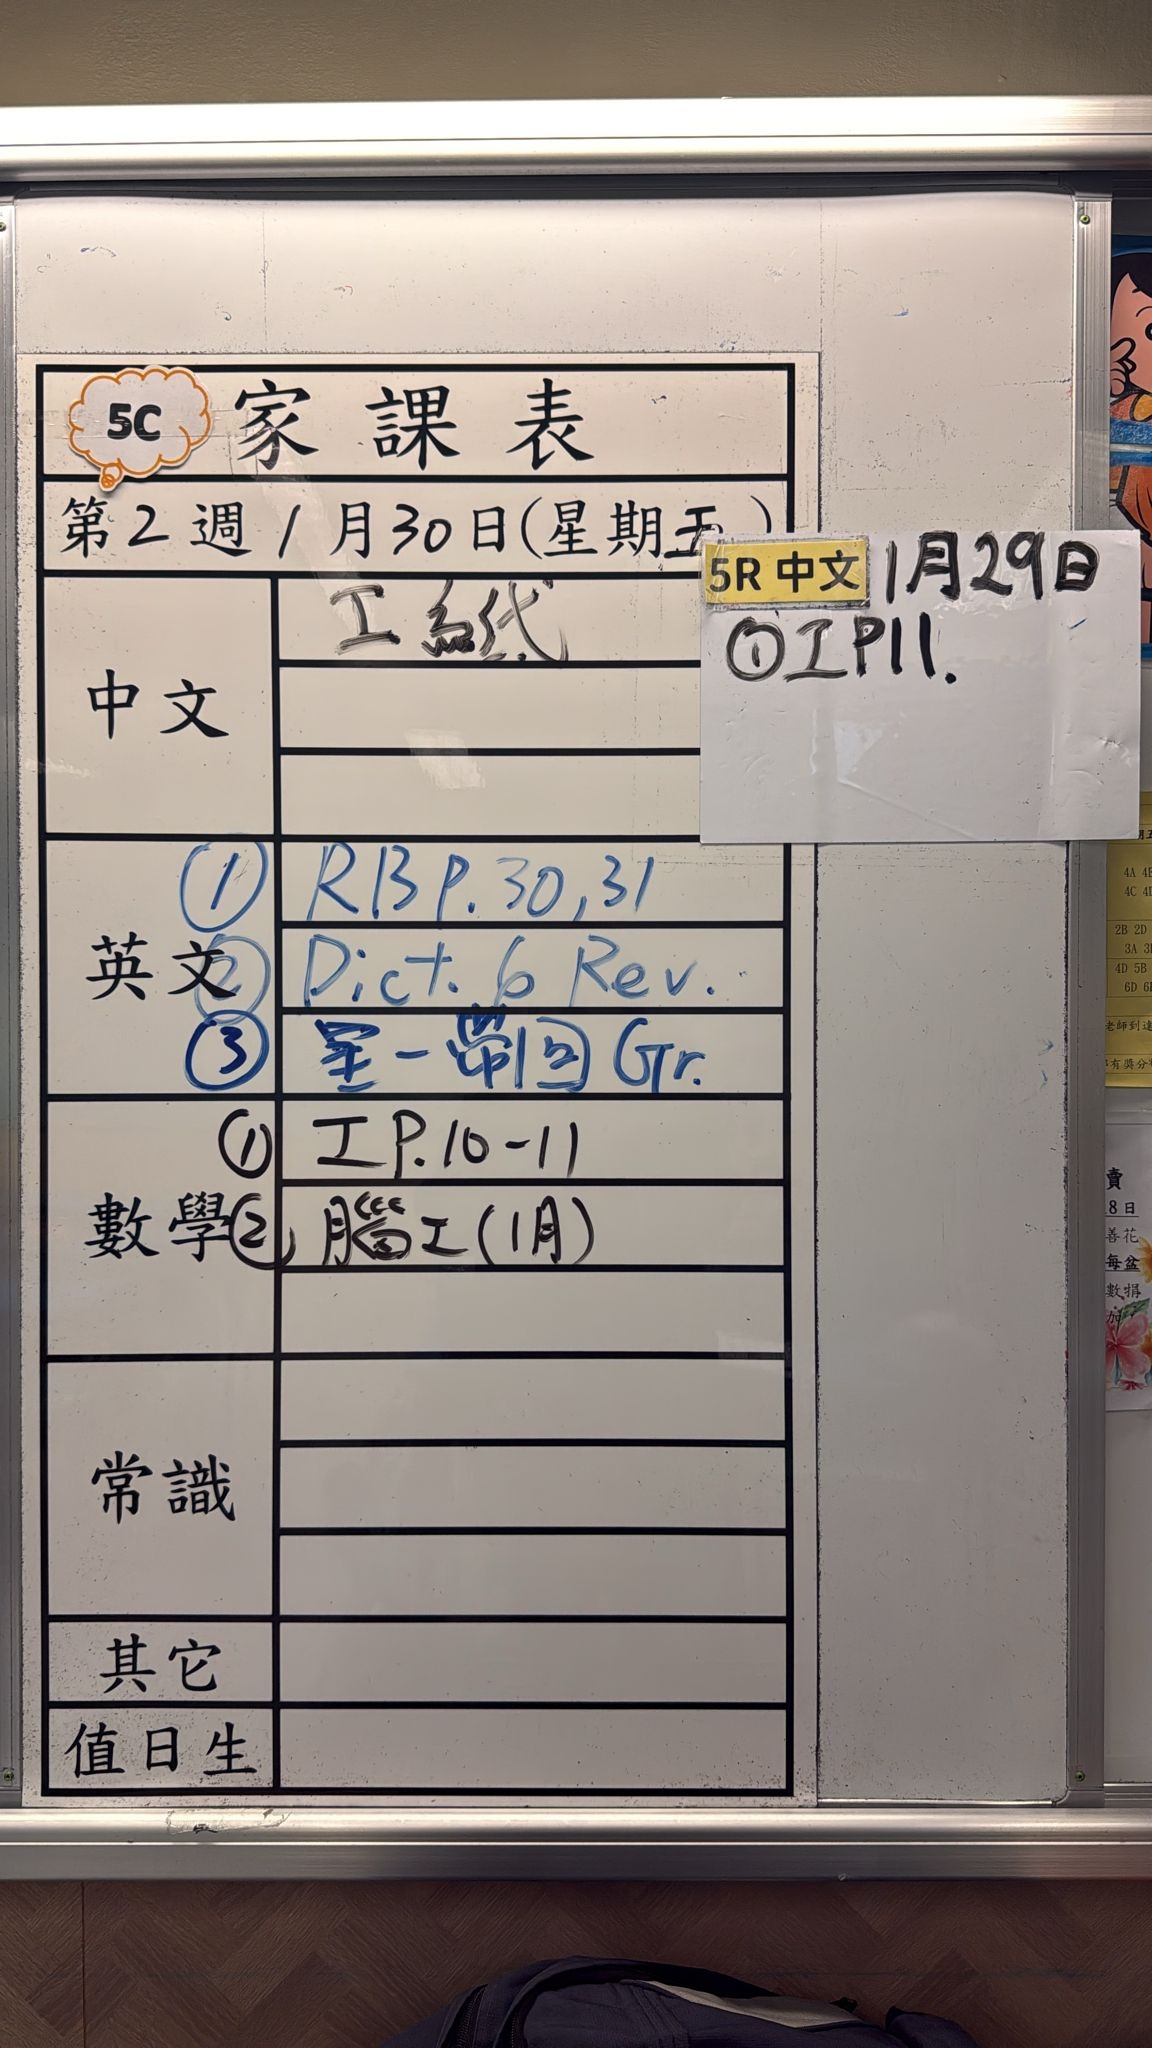 5C 家課表
第2週1月30日(星期五)
5R 中文 1月29日
①工P11.
中文
工紙
英文
① RB P.30,31
② Dict. 6 Rev.
③ 星一帶回 Gr.
數學
① 工P.10-11
② 腦工(1月)
常識
其它
值日生
4A
4C
2B 2D
3A
4D 5B
6D
老師到達
有獎分
賣
8日
善花
每盆
數捐
加